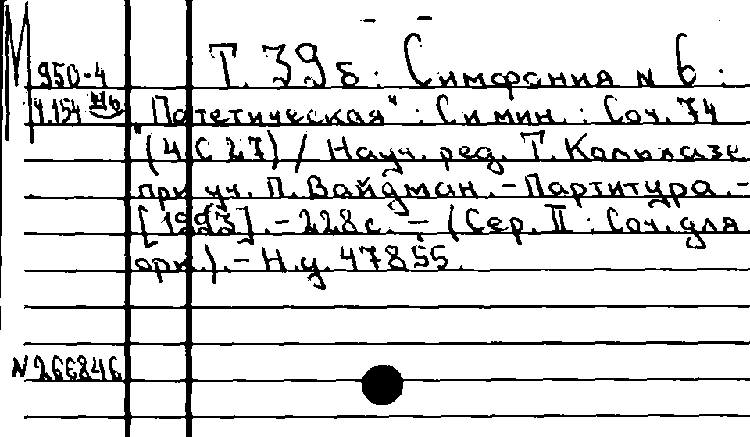 М 950-4
Ч.154 Нб
Т. 39б : Симфония № 6 :
"Патетическая" : Си мин. : Соч. 74
(ЧС 27) / Науч. ред. Т. Кольхазе
при уч. П. Вайдман. - Партитура. -
[1993]. - 228 с. - (Сер. II : Соч. для
орк.). - Н.д. 47855.
N 266846